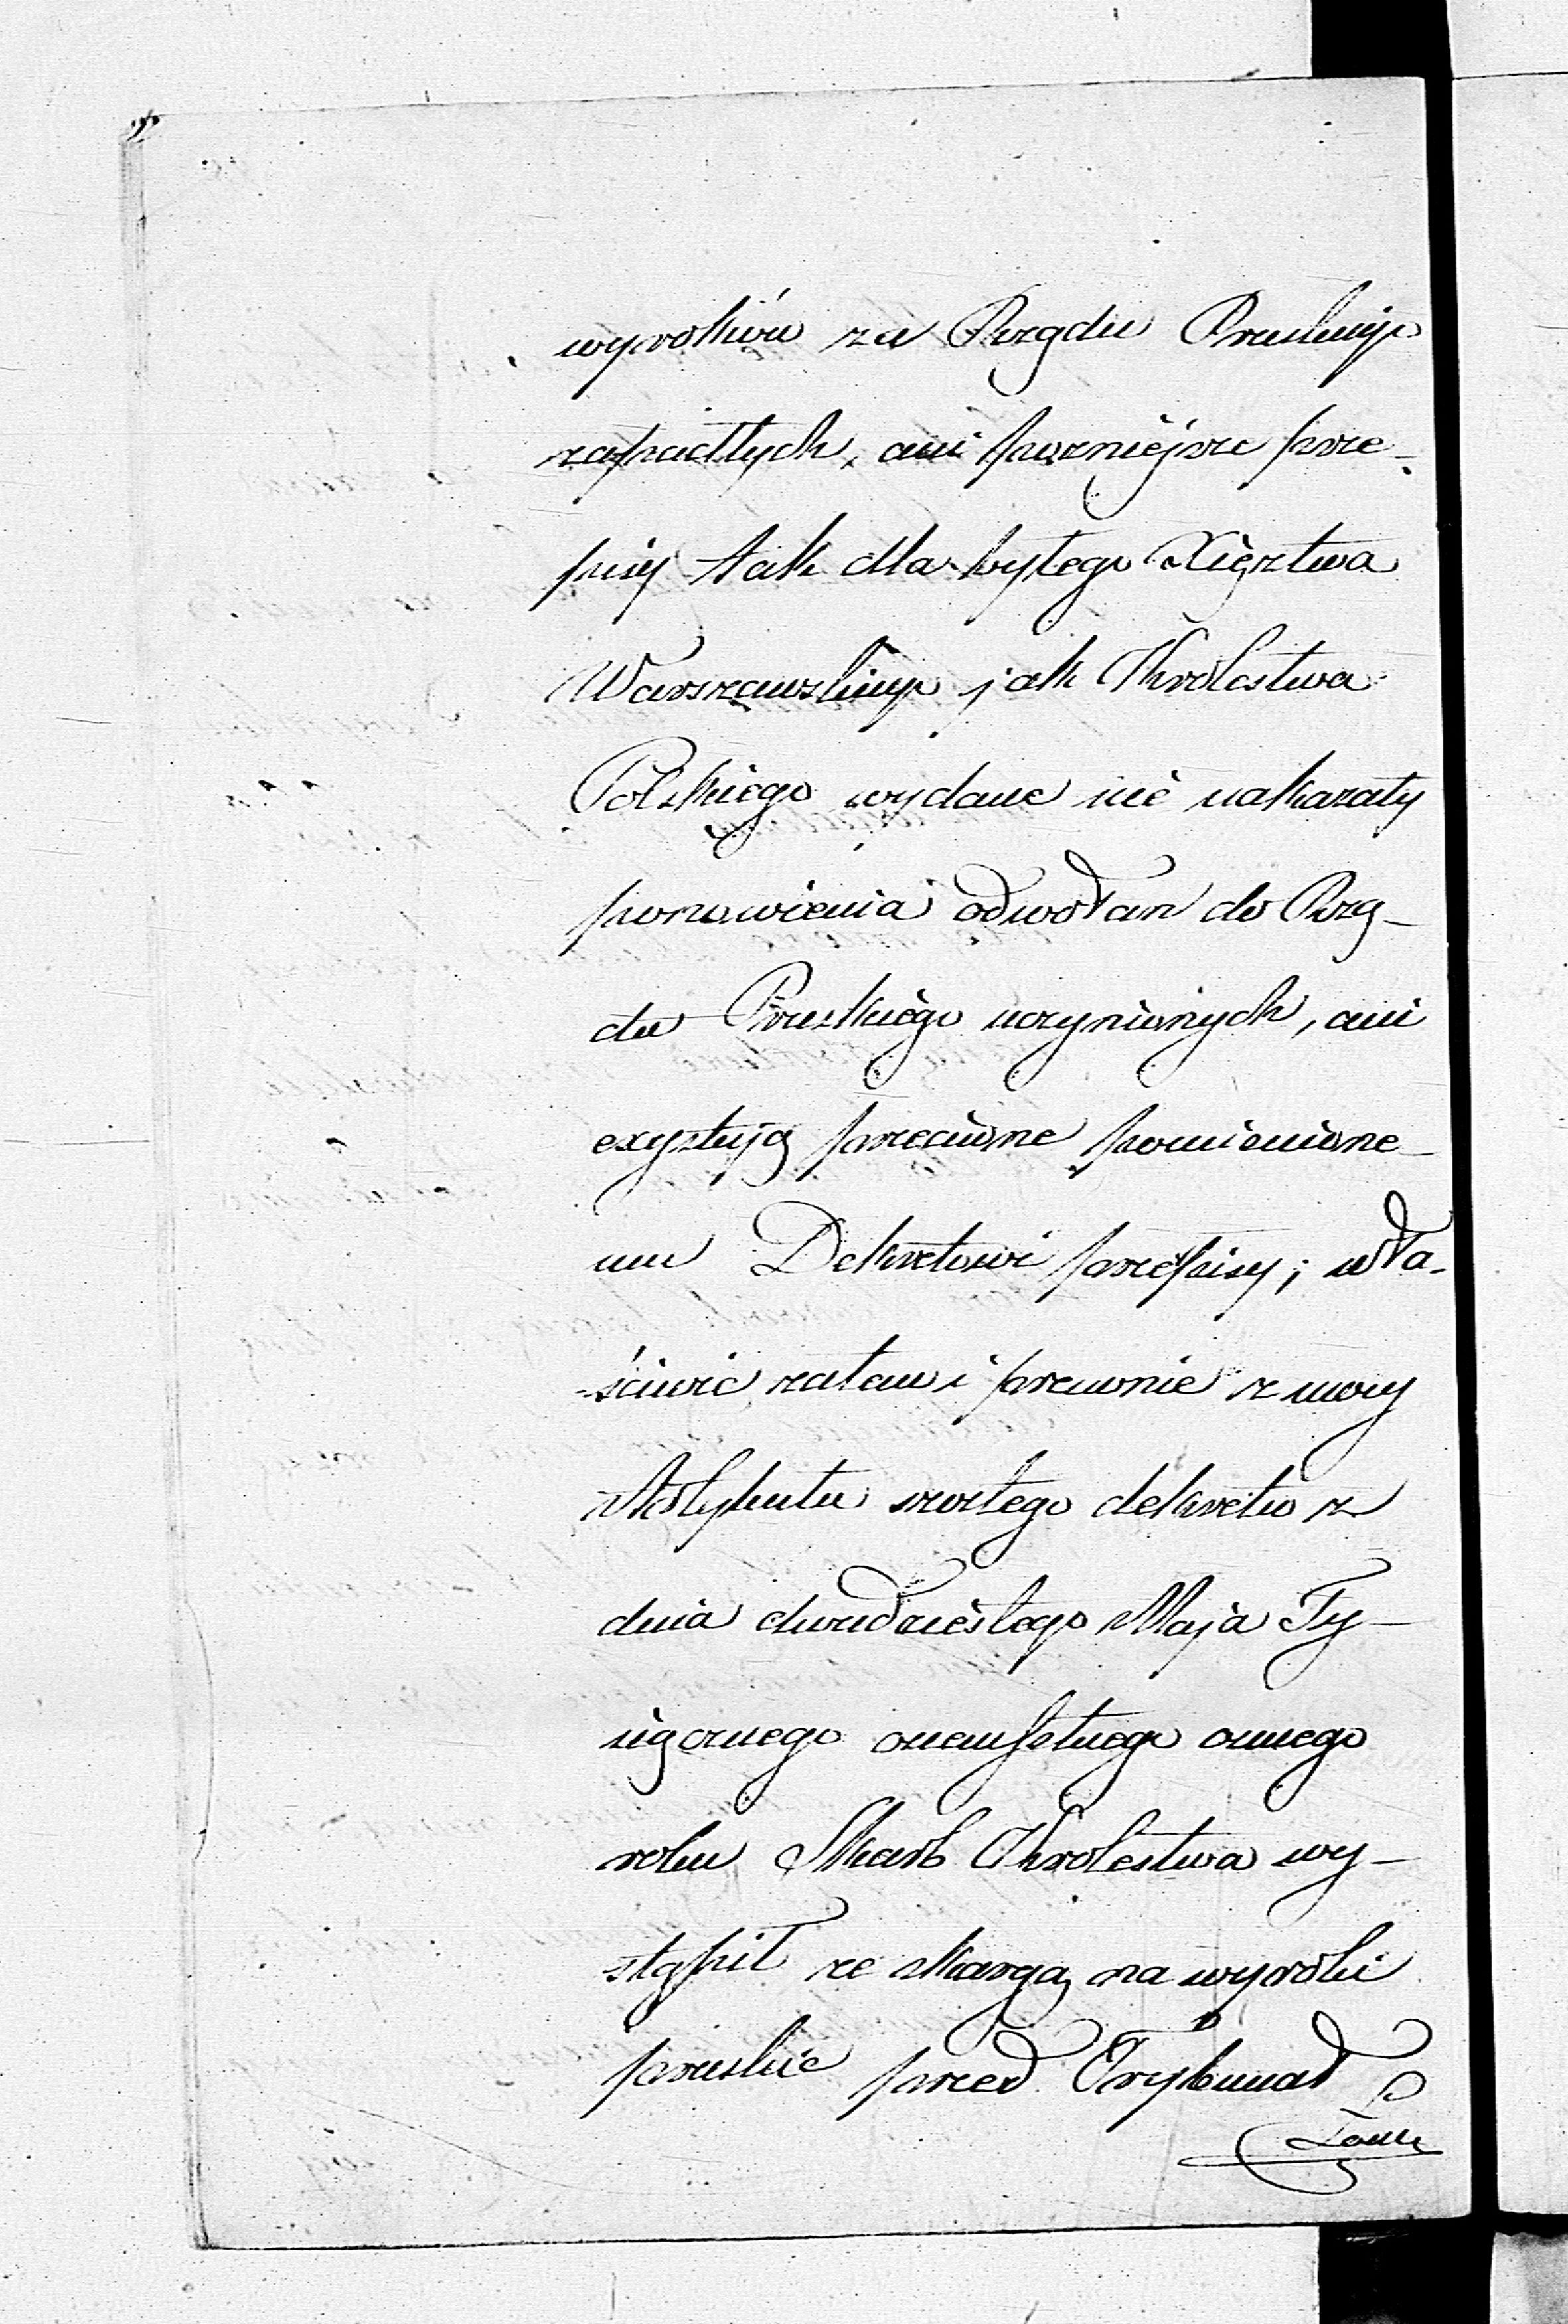 wyroków za Rządu Pruskiego
zapadłych, ani poznieysze prze-
pisy tak dla byłego Xięztwa
Warszawskiego jak Królestwa
Polskiego wydane nie nakazały
ponowienia odwołań do Rzą-
du Pruskiego uczynionych, ani
exystują przeciwne pomienione-
mu Dekretowi przepisy; wła-
-ściwie zatem i prawnie z mocy
Artykułu szóstego dekretu z
dnia dwudziestego Maja Ty-
siącznego ośmsetnego ósmego
roku Skarb Królestwa wy-
stąpił ze skargą na wyroki
pruskie przed Trybunał